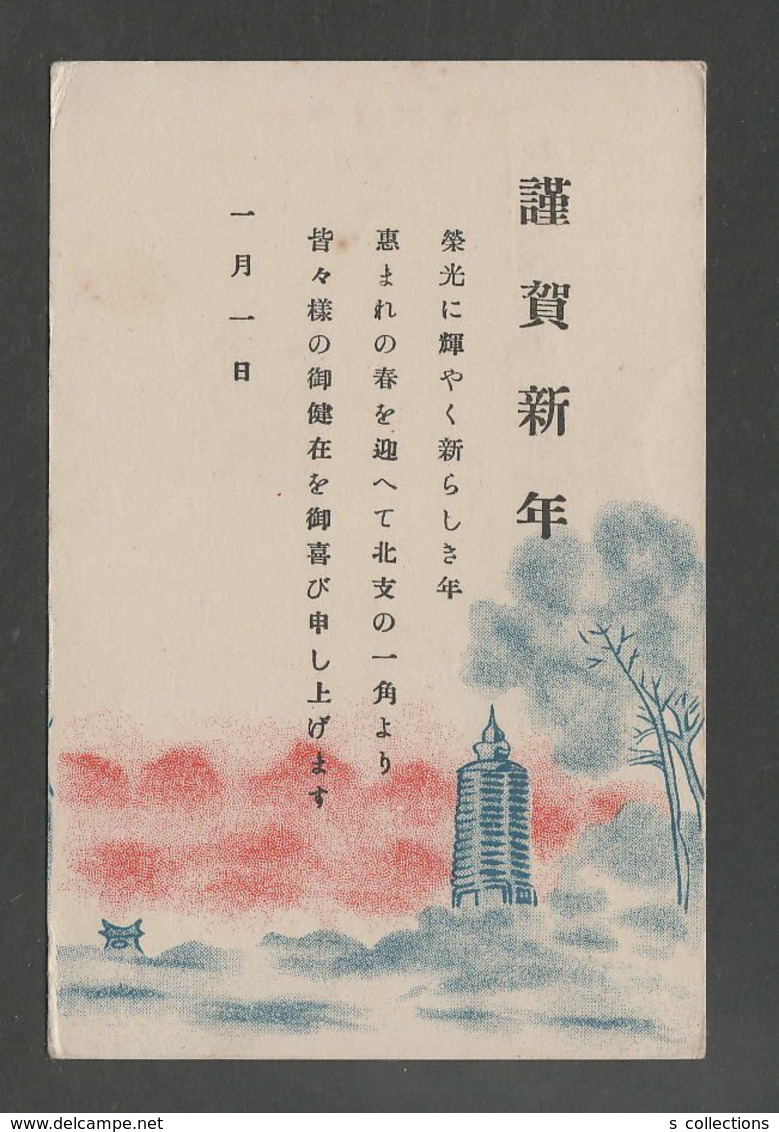 謹賀新年
榮光に輝やく新らしき年
惠まれの春を迎へて北支の一角より
皆々樣の御健在を御喜び申し上げます
一月一日
www.delcampe.net
s collections